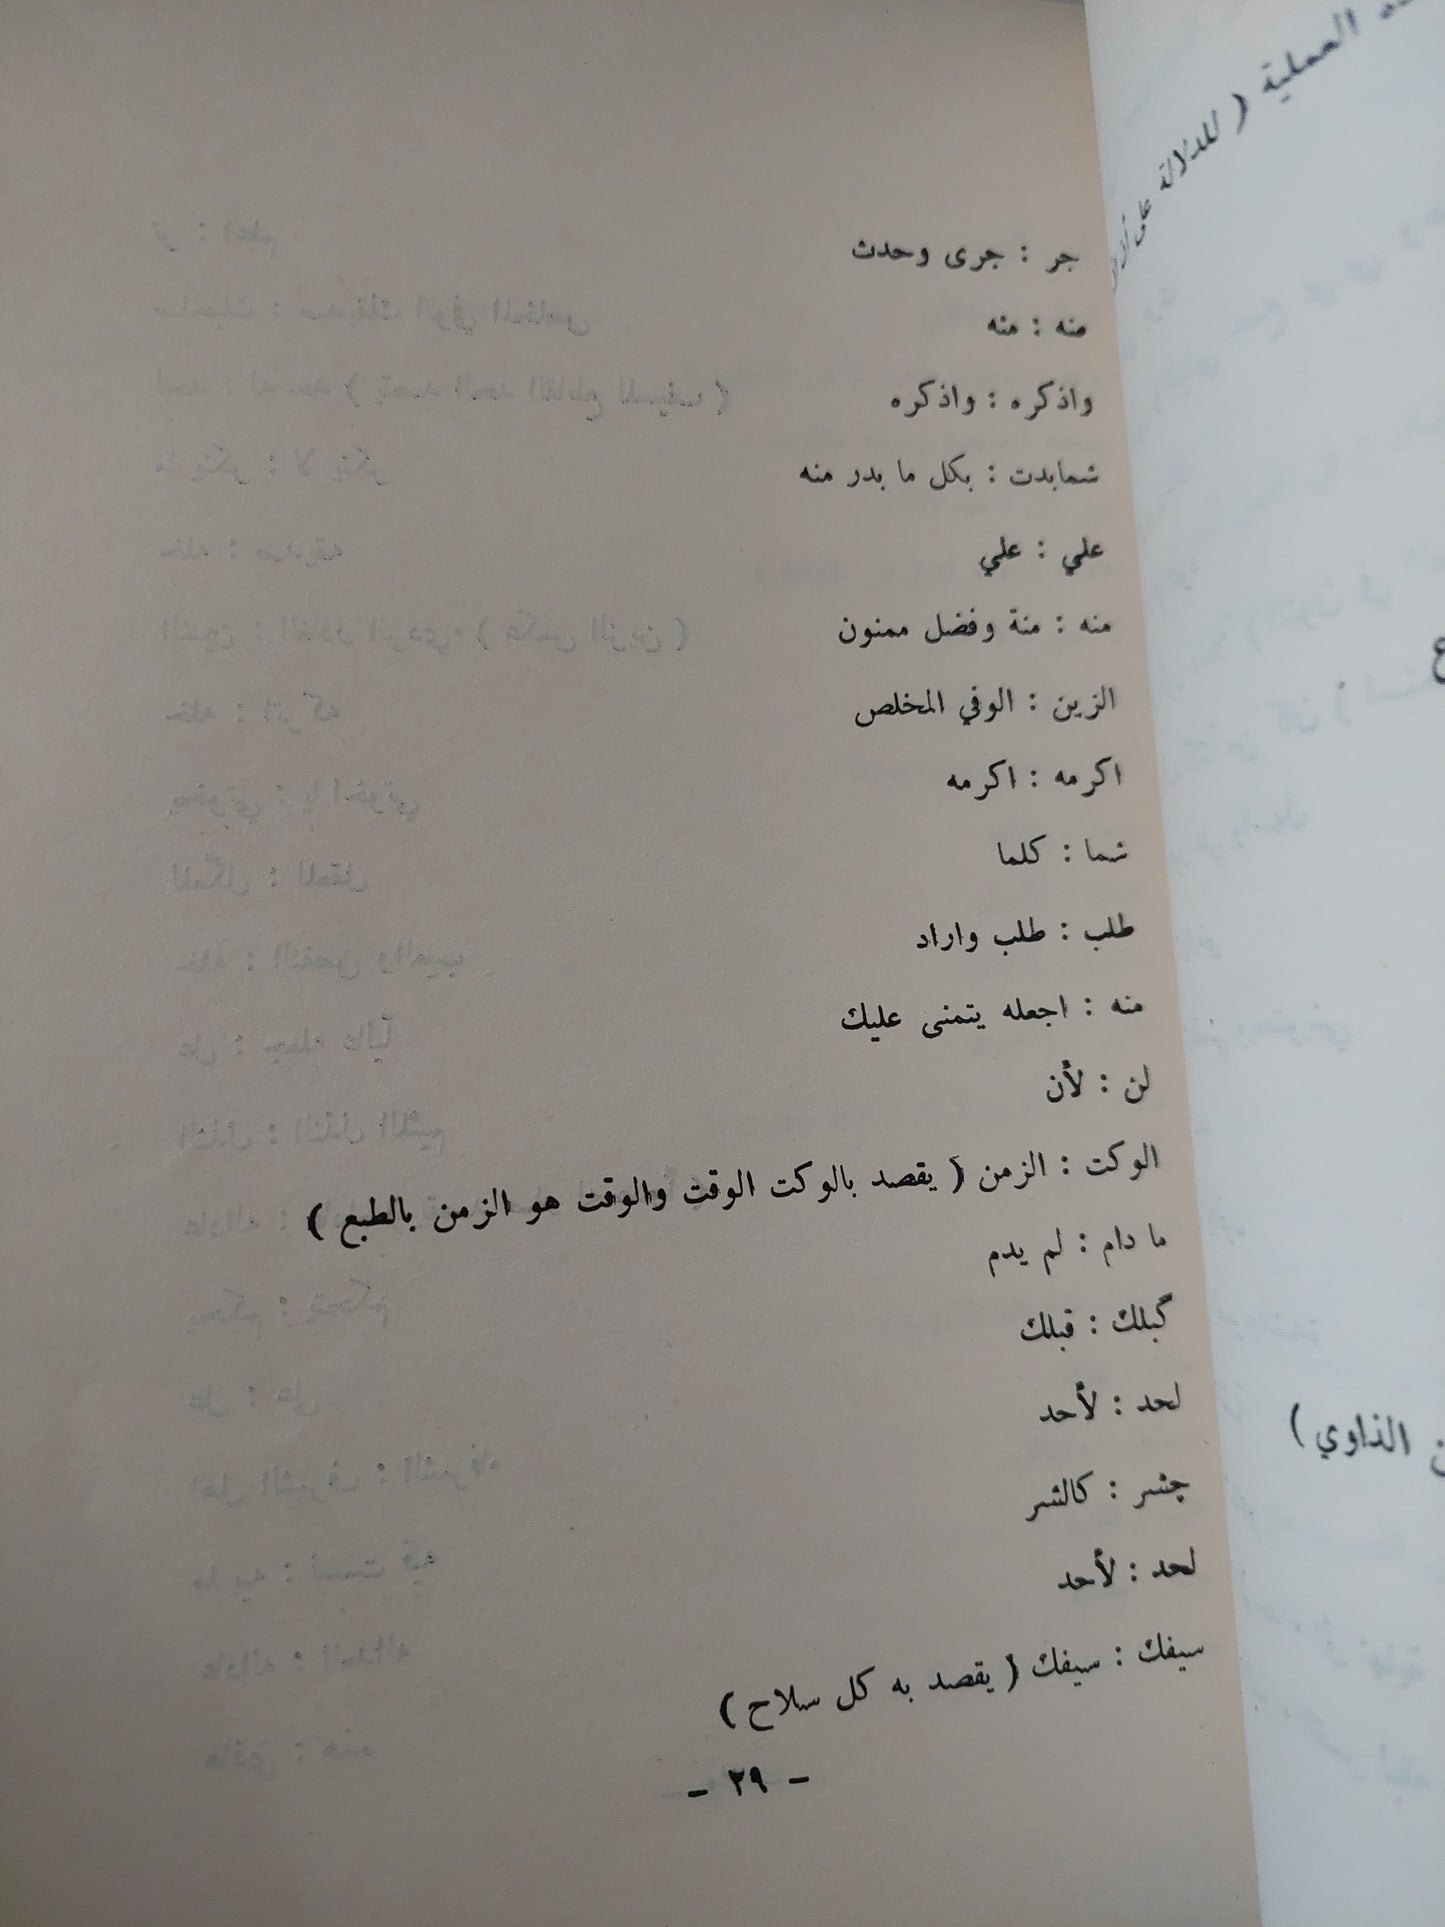 جر : جرى وحدث
منه : منه
واذكره : واذكره
شمابدت : بكل ما بدر منه
علي : علي
منه : منة وفضل ممنون
الزين : الوفي المخلص
اكرمه : اكرمه
شما : كلما
طلب : طلب واراد
منه : اجعله يتمنى عليك
لن : لأن
الوكت : الزمن ( يقصد بالوكت الوقت والوقت هو الزمن بالطبع )
ما دام : لم يدم
گبلك : قبلك
لحد : لأحد
چشر : كالشر
لحد : لأحد
سيفك : سيفك ( يقصد به كل سلاح )
- ٢٩ -
العملية ( للدلالة على
الذاوي )